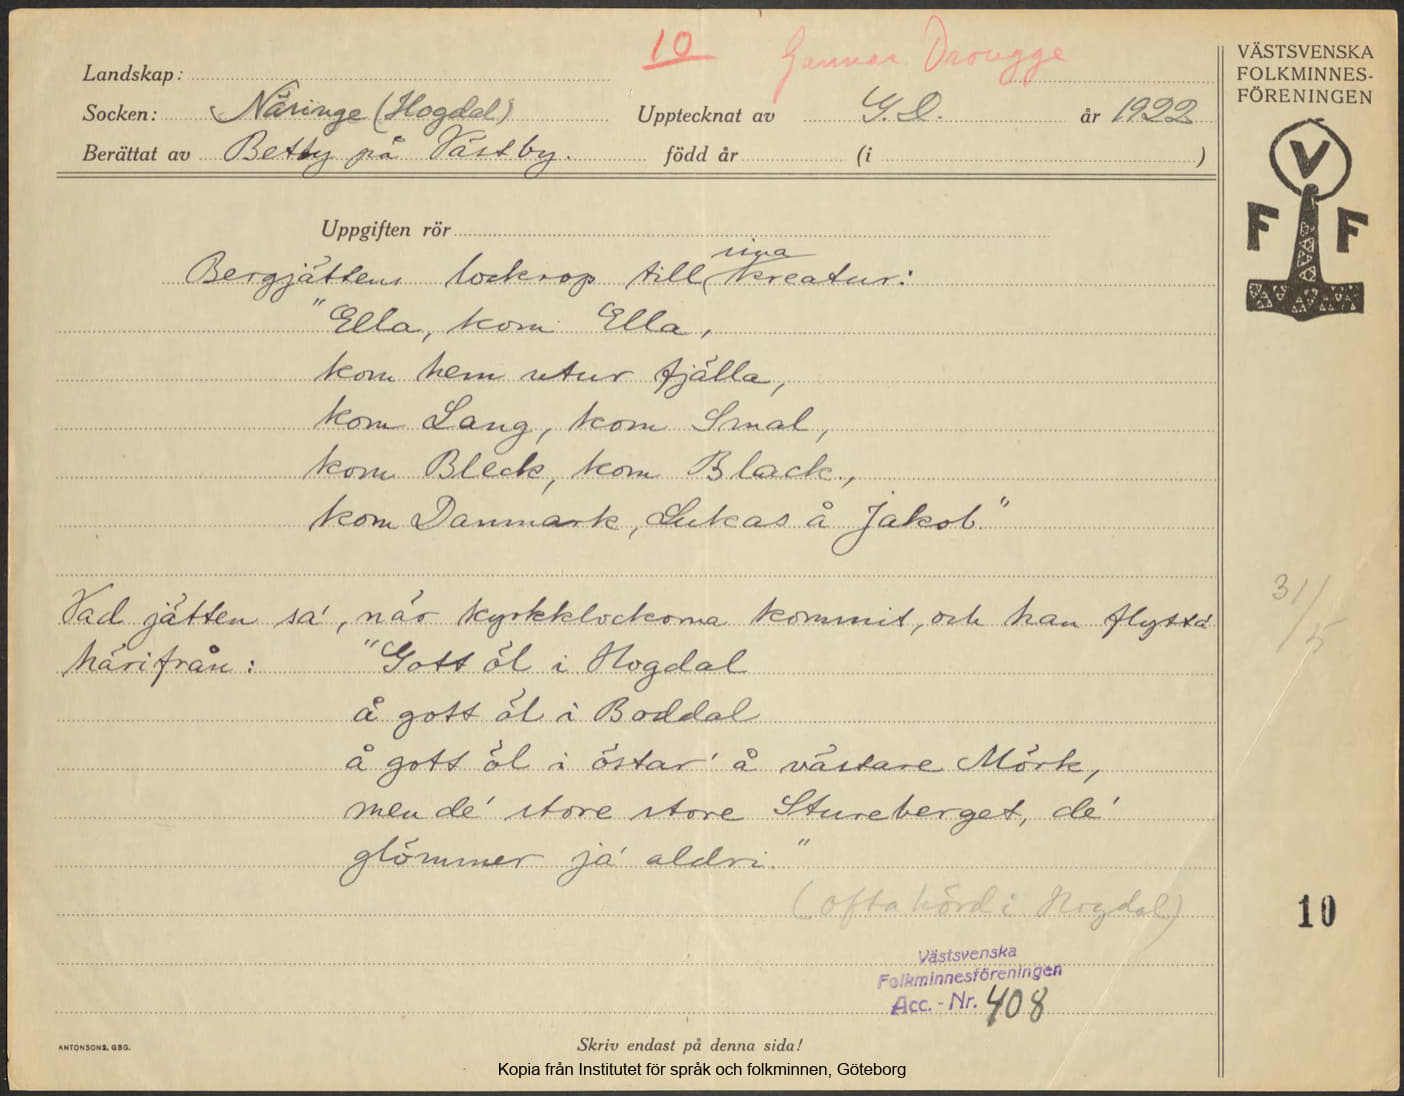 10 Gunnar Drougge
VÄSTSVENSKA
FOLKMINNES-
FÖRENINGEN
Landskap:
Socken: Näringe (Hogdal) Upptecknat av G. D. år 1922
Berättat av Betty på Västby. född år (i )
V
F F
Uppgiften rör
Bergjättens lockrop till sina kreatur:
"Ella, kom Ella,
kom hem utur fjälla,
kom Lang, kom Smal,
kom Bleck, kom Black,
kom Danmark, Lukas å Jakob."
Vad jätten sa', när kyrkklockorna kommit, och han flytta'
härifrån: "Gott öl i Hogdal
å gott öl i Boddal
å gott öl i östar' å västare Mörk,
men de' store store Stureberget, de'
glömmer ja' aldri."
(ofta hörd i Hogdal)
31/5
10
Västsvenska
Folkminnesföreningen
Acc. - Nr. 408
ANTONSONS, GBG.
Skriv endast på denna sida!
Kopia från Institutet för språk och folkminnen, Göteborg